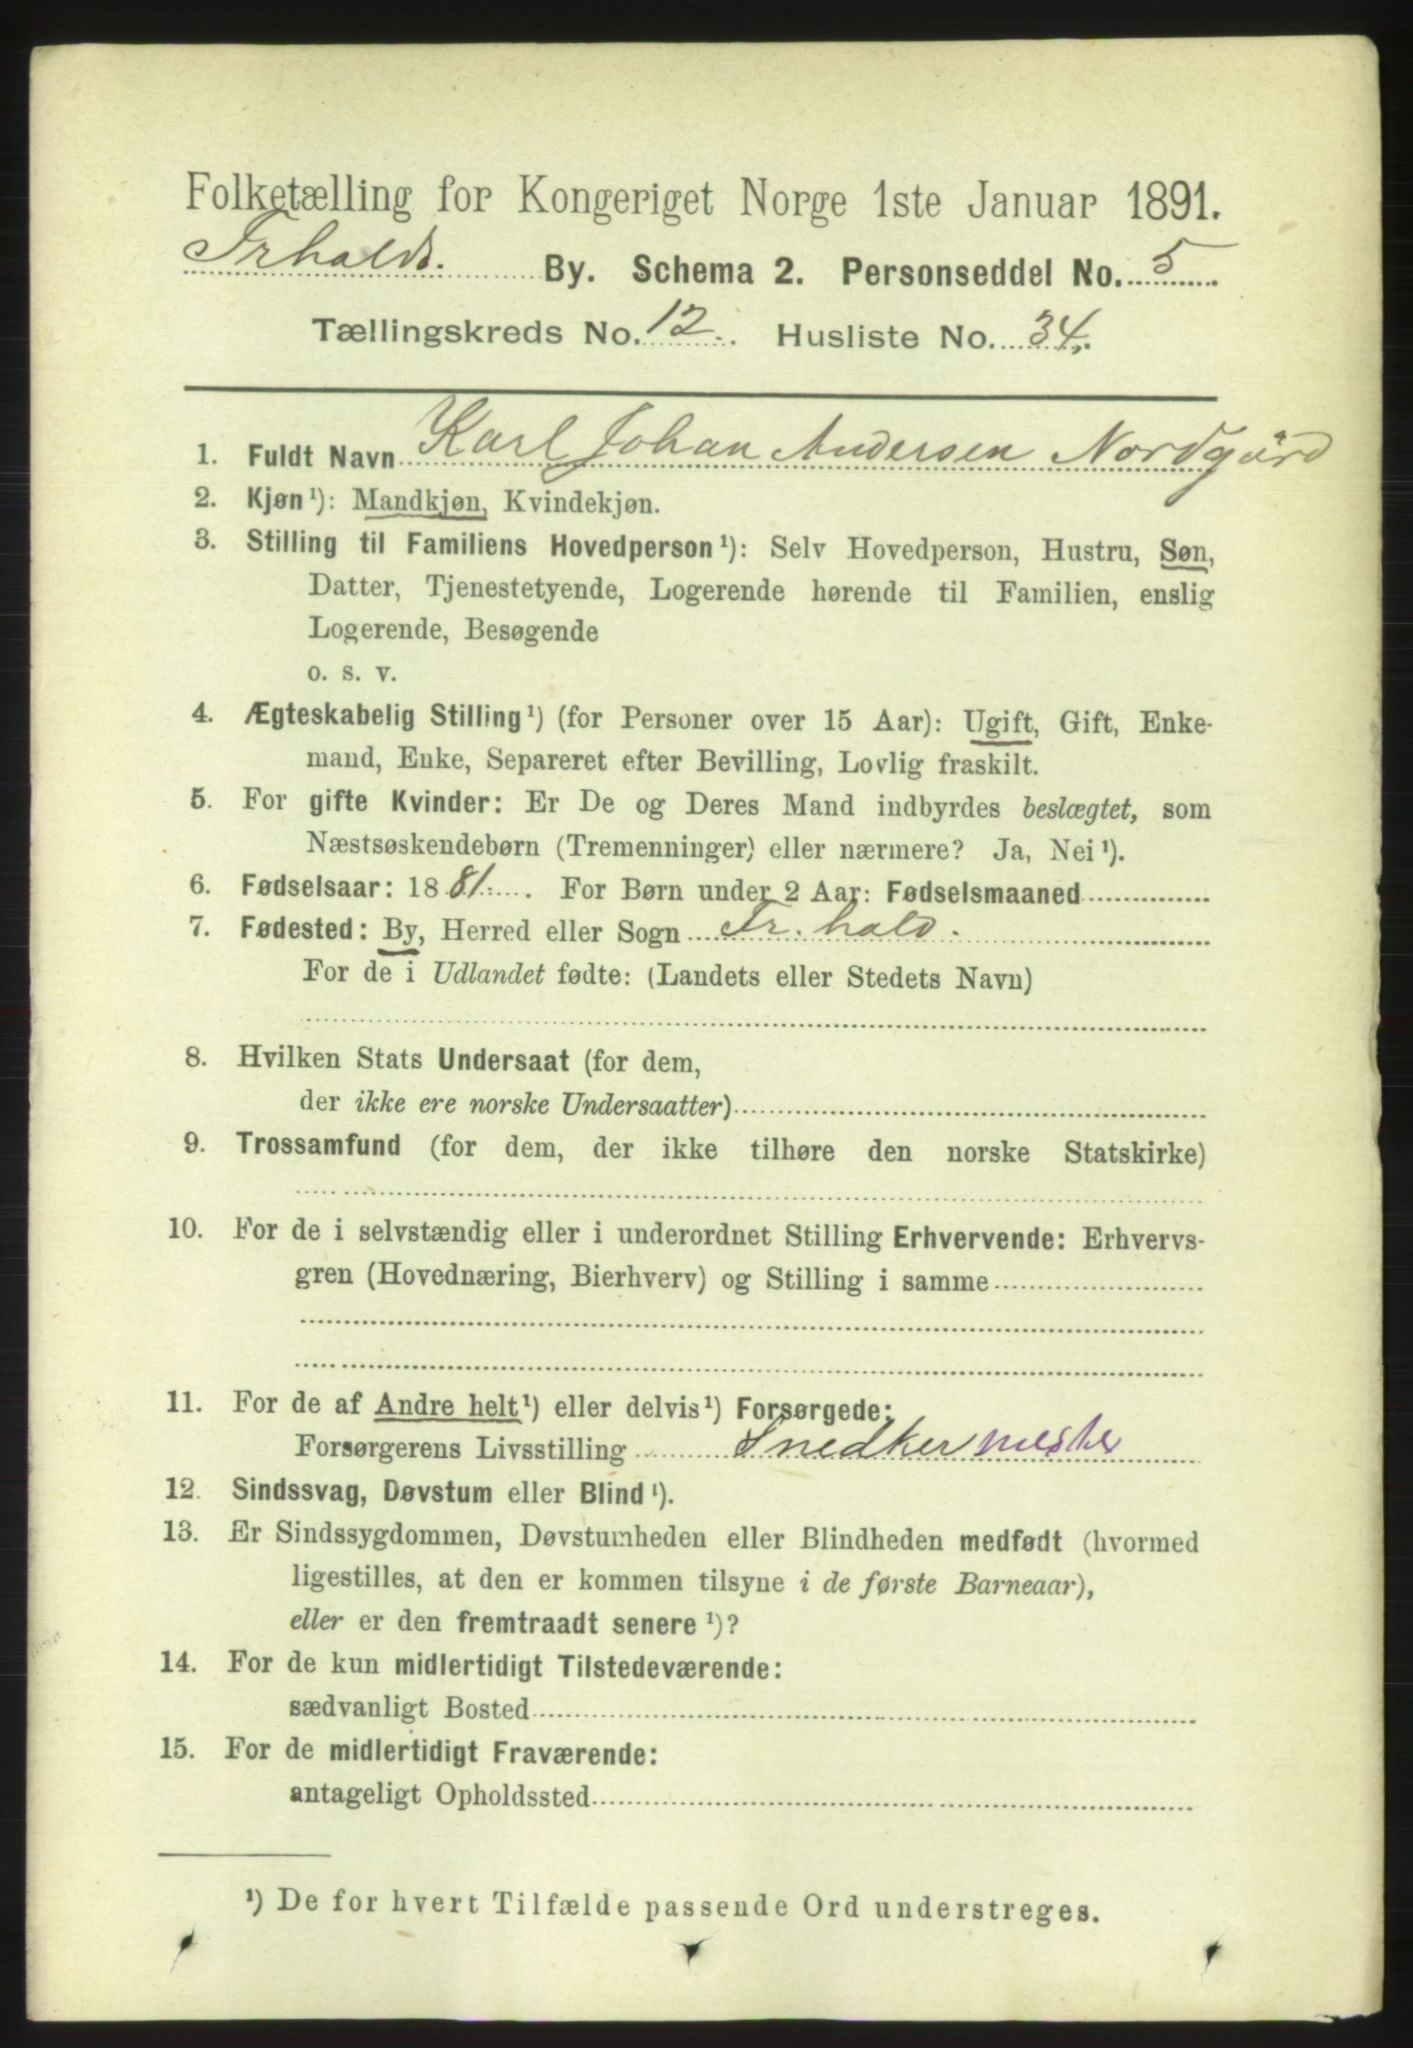 Folketælling for Kongeriget Norge 1ste Januar 1891.
Frhalds. By. Schema 2. Personseddel No. 5
Tællingskreds No. 12. Husliste No. 34.
1. Fuldt Navn Karl Johan Andersen Nordgård
2. Kjøn¹): Mandkjøn, Kvindekjøn.
3. Stilling til Familiens Hovedperson¹): Selv Hovedperson, Hustru, Søn,
Datter, Tjenestetyende, Logerende hørende til Familien, enslig
Logerende, Besøgende
o. s. v.
4. Ægteskabelig Stilling¹) (for Personer over 15 Aar): Ugift, Gift, Enke-
mand, Enke, Separeret efter Bevilling, Lovlig fraskilt.
5. For gifte Kvinder: Er De og Deres Mand indbyrdes beslægtet, som
Næstsøskendebørn (Tremenninger) eller nærmere? Ja, Nei¹).
6. Fødselsaar: 1881. For Børn under 2 Aar: Fødselsmaaned
7. Fødested: By, Herred eller Sogn Fr.hald.
For de i Udlandet fødte: (Landets eller Stedets Navn)
8. Hvilken Stats Undersaat (for dem,
der ikke ere norske Undersaatter)
9. Trossamfund (for dem, der ikke tilhøre den norske Statskirke)
10. For de i selvstændig eller i underordnet Stilling Erhvervende: Erhvervs-
gren (Hovednæring, Bierhverv) og Stilling i samme
11. For de af Andre helt¹) eller delvis¹) Forsørgede:
Forsørgerens Livsstilling Snedkermester
12. Sindssvag, Døvstum eller Blind¹).
13. Er Sindssygdommen, Døvstumheden eller Blindheden medfødt (hvormed
ligestilles, at den er kommen tilsyne i de første Barneaar),
eller er den fremtraadt senere¹)?
14. For de kun midlertidigt Tilstedeværende:
sædvanligt Bosted
15. For de midlertidigt Fraværende:
antageligt Opholdssted
¹) De for hvert Tilfælde passende Ord understreges.